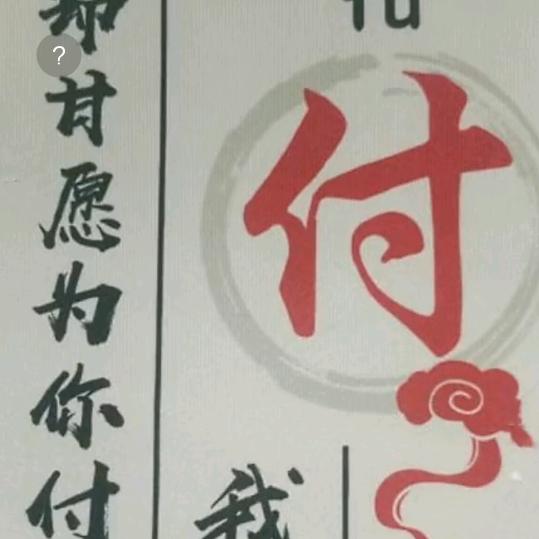 却甘愿为你付
付
我